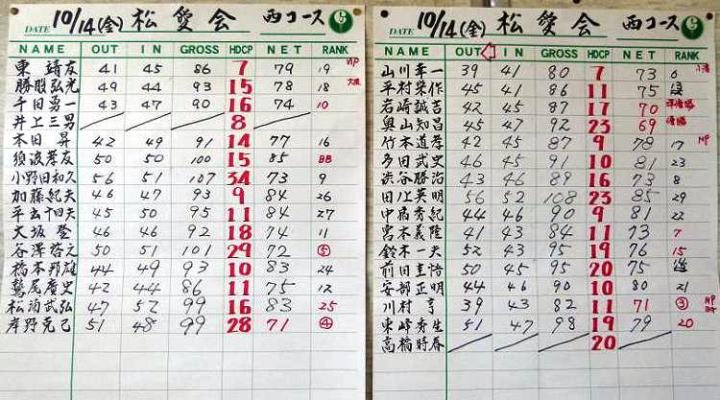 DATE 10/14(金) 松愛会 西コース
NAME OUT IN GROSS HDCP NET RANK
東 靖友 41 45 86 7 79 19
勝股弘光 49 44 93 15 78 18
千田勇一 43 47 90 16 74 10
井上三男 8
本田 昇 42 49 91 14 77 16
須波孝友 50 50 100 15 85 BB
小野田和久 56 51 107 34 73 9
加藤紀夫 46 47 93 9 84 26
平 千田夫 45 50 95 11 84 27
大坂 登 46 46 92 18 74 11
谷澤啓之 50 51 101 29 72 ⑤
橋本邦雄 44 49 93 10 83 24
鷲尾廣史 42 44 86 11 75 12
松浦武弘 47 52 99 16 83 25
岸野克己 51 48 99 28 71 ④
DATE 10/14(金) 松愛会 西コース
NAME OUT IN GROSS HDCP NET RANK
山川幸一 39 41 80 7 73 6
平村栄作 45 41 86 11 75
岩崎誠吉 42 45 87 17 70 準優勝
奥山知昌 45 47 92 23 69 優勝
竹本道孝 42 45 87 9 78 17
多田武史 46 45 91 10 81 23
渋谷勝治 43 46 89 16 73 8
田江英明 56 52 108 23 85 29
中居秀紀 44 46 90 9 81 22
宮本義隆 41 43 84 11 73 7
鈴木一夫 52 43 95 19 76 15
前田圭悟 50 45 95 20 75
安部正明 44 46 90 10 80 21
川村 亨 39 43 82 11 71 ③
東峰秀生 51 47 98 19 79 20
高橋時春 20